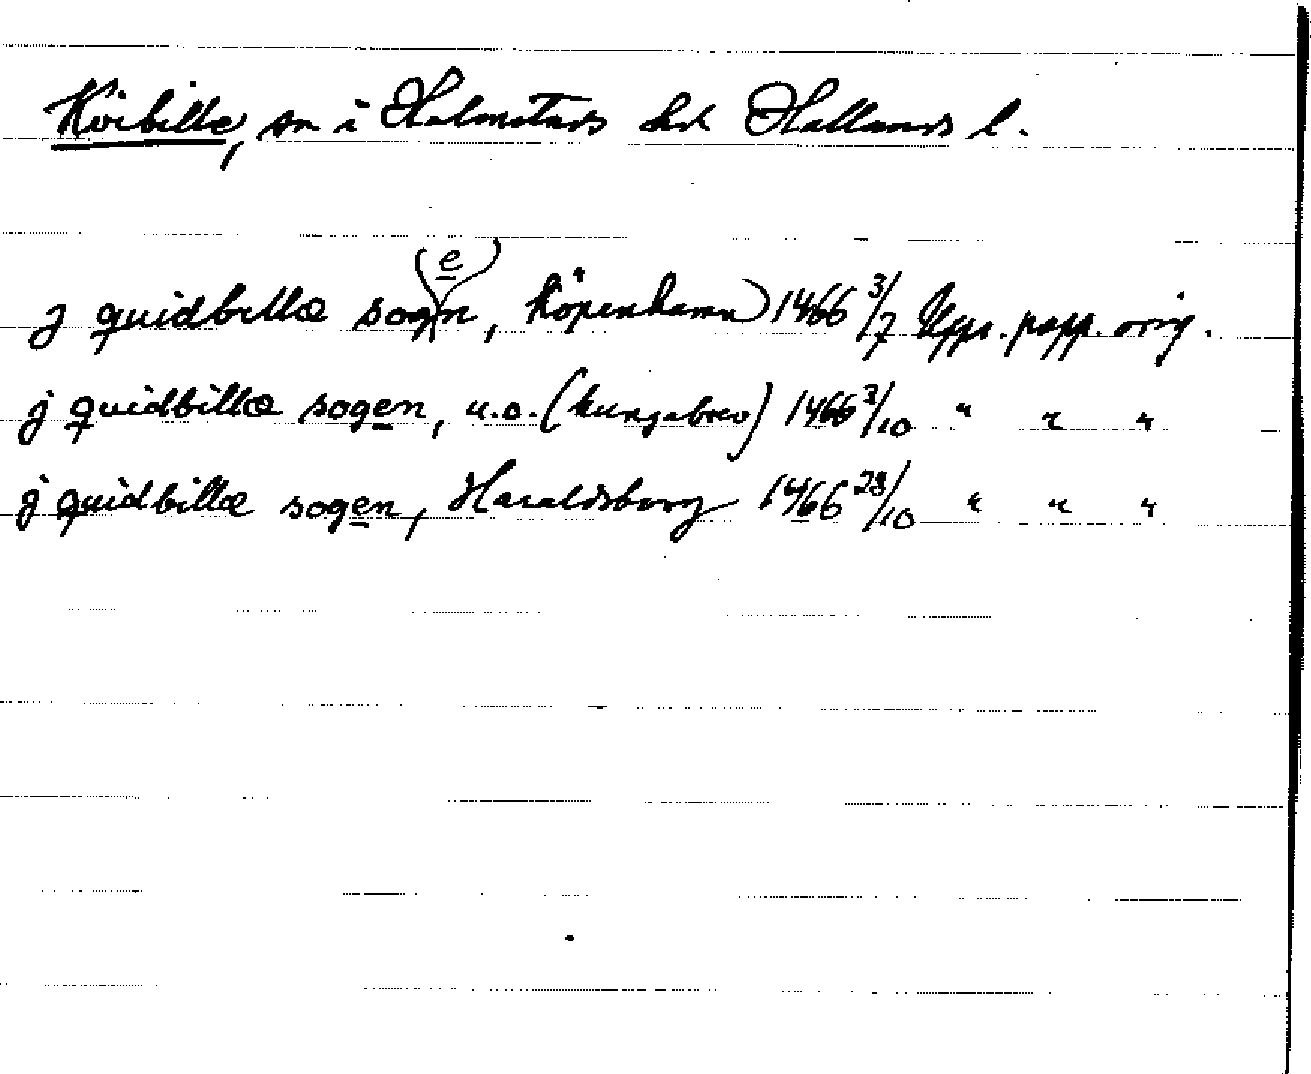 Kvibille, sn i Halmstads hd Hallands l.
j quidbillæ sog(e)n, Köpenhamn 1466 3/7 Upps. papp. orig.
j quidbillæ sogen, u.o. (kungabrev) 1466 3/10 " " "
j quidbillæ sogen, Haraldsborg 1466 28/10 " " "